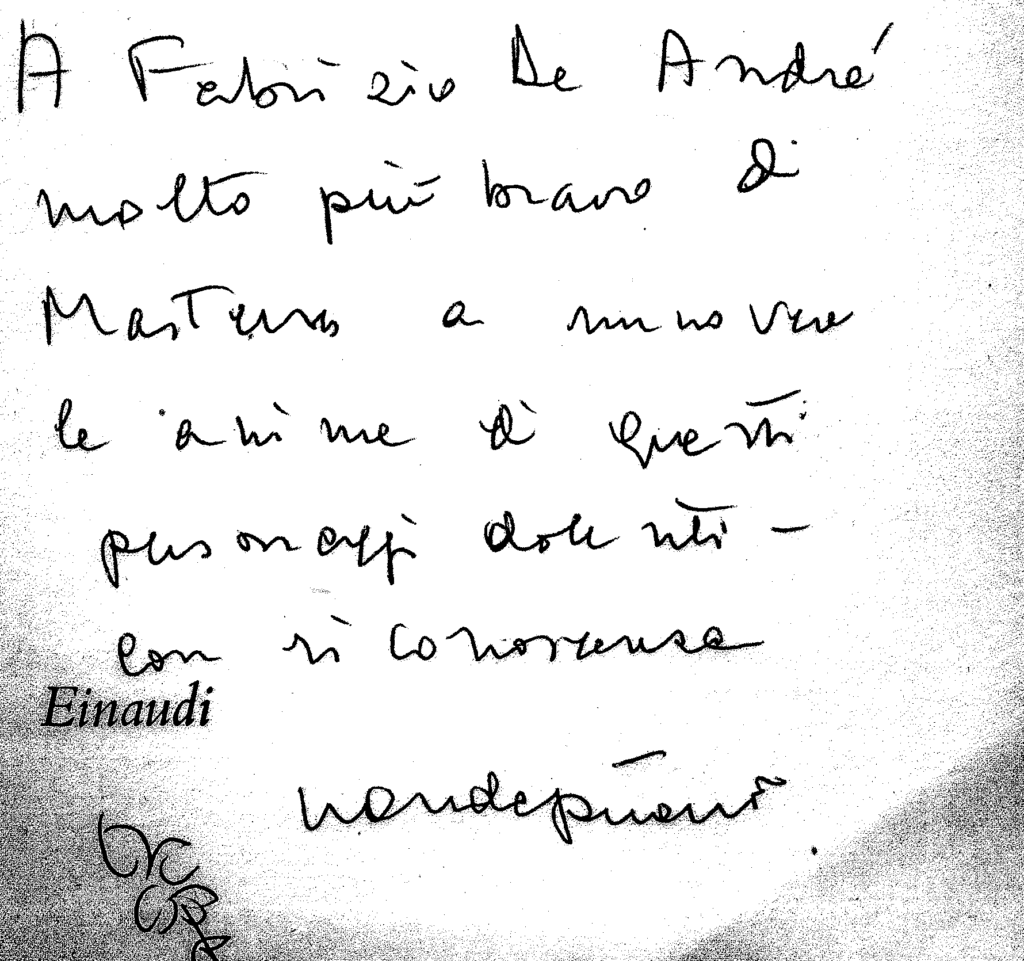 A Fabrizio De André
molto più bravo di
Masters a muovere
le anime di questi
personaggi dolenti -
con riconoscenza
Einaudi
nandapivano